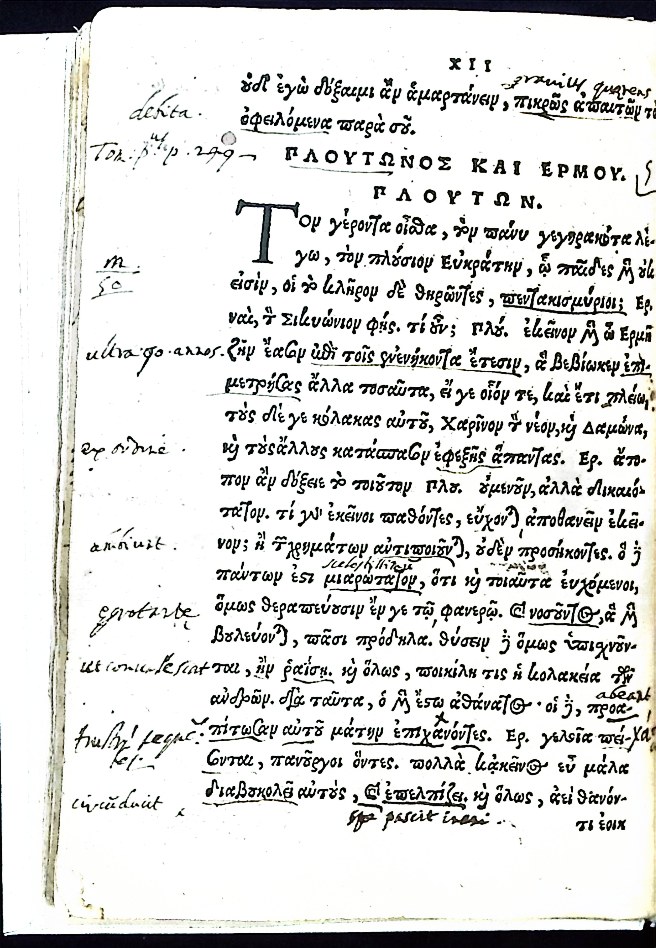 XII
graviter quaerens
οὐδὲ ἐγὼ δόξαιμι ἂν ἁμαρτάνειν, πικρῶς ἀπαιτῶν τὰ
debita.
ὀφειλόμενα παρὰ σοῦ.
Tom. p. 299
ΠΛΟΥΤΩΝΟΣ ΚΑΙ ΕΡΜΟΥ.
ΠΛΟΥΤΩΝ.
Τὸν γέροντα οἶσθα, τὸν πάνυ γεγηρακότα λέ-
γω, τὸν πλούσιον Εὐκράτην, ᾧ παῖδες μὲν οὐκ
εἰσὶν, οἱ τὸ κλῆρον δὲ θηρῶντες, πεντακισμύριοι; Ερ.
ναὶ, τ Σικυώνιον φής. τί οὖν; Πλύ. ἐκεῖνον μὲν ὦ Ερμῆ
ultra 90. annos.
ζῆν ἔασον ἐπὶ τοῖς ἐνενήκοντα ἔτεσιν, ἃ βεβίωκεν ἐπι-
μετρήσας ἄλλα τοσαῦτα, εἴ γε οἷόν τε, καὶ ἔτι πλείω,
τοὺς δέ γε κόλακας αὐτοῦ, Χαρῖνον τ νέον, καὶ Δάμωνα,
ex ordine.
καὶ τοὺς ἄλλους κατάσπασον ἐφεξῆς ἅπαντας. Ερ. ἄτο-
πον ἂν δόξειε τὸ τοιοῦτον Πλυ. οὐμενοῦν, ἀλλὰ δικαιό-
τατον. τί γὰρ ἐκεῖνοι παθόντες, εὔχονται ἀποθανεῖν ἐκεῖ-
νον; ἢ τ χρημάτων ἀντιποιοῦνται, οὐδὲν προσήκοντες. ὃ δὲ
πάντων ἐστὶ μιαρώτατον, ὅτι καὶ τοιαῦτα εὐχόμενοι,
aegrotante
ὅμως θεραπεύουσιν ἔν γε τῷ φανερῷ. καὶ νοσοῦντος, ἃ μὲν
βουλεύονται, πᾶσι πρόδηλα. θύσειν δὲ ὅμως ὑπισχνοῦν-
ut convalescat
ται, ἢν ῥαΐσῃ. καὶ ὅλως, ποικίλη τις ἡ κολακεία τῶν
abeant
ἀνδρῶν. διὰ ταῦτα, ὁ μὲν ἔστω ἀθάνατος· οἱ δὲ, προα-
πίτωσαν αὐτοῦ μάτην ἐπιχανόντες. Ερ. γελοῖα πεί-
σονται, πανοῦργοι ὄντες. πολλὰ κἀκεῖνος εὖ μάλα
circumducit
διαβουκολεῖ αὐτοὺς, καὶ ἐπελπίζει. καὶ ὅλως, ἀεὶ θανόν-
spe pascit
τι ἐοικ